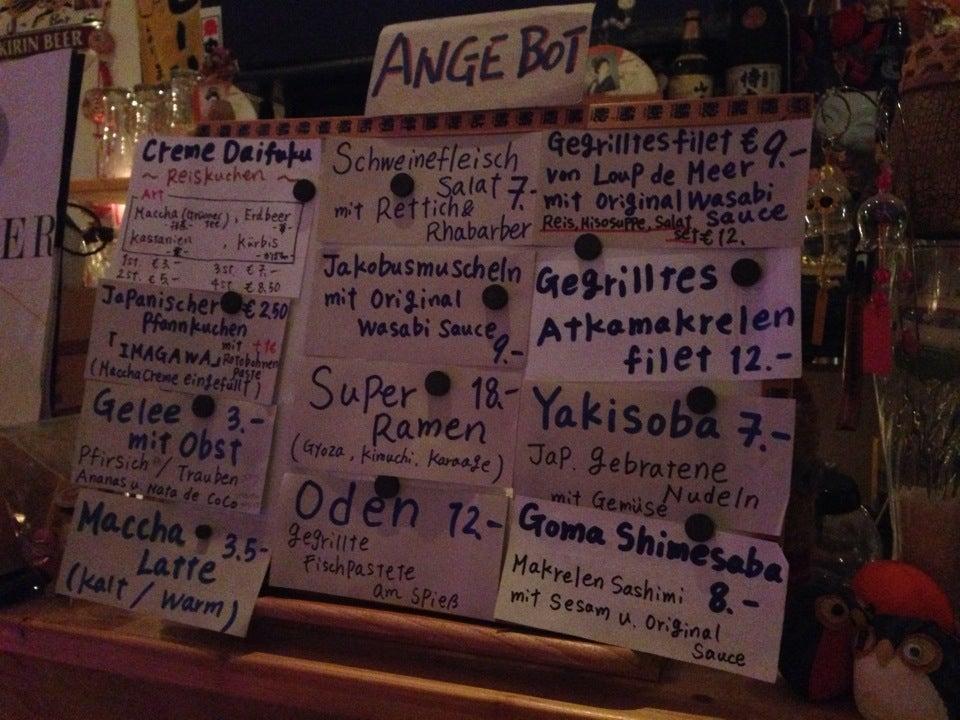 KIRIN BEER
ER
ANGEBOT
Creme Daifuku
~ Reiskuchen ~
Art
Maccha (Grüner Tee), Erdbeer
Kastanien, Kürbis
1st. €3.-
3st. €7.-
2st. €5.-
4st. €8.50
Japanischer €2,50
Pfannkuchen
mit +1€
「IMAGAWA」 Rotebohnen
Paste
(Maccha Creme eingefüllt)
Gelee 3.-
mit Obst
Pfirsich / Trauben
Ananas u. Nata de Coco
Maccha 3.5-
Latte
(Kalt / Warm)
Schweinefleisch
Salat 7.-
mit Rettich &
Rhabarber
Jakobusmuscheln
mit Original
Wasabi Sauce
9.-
Super 18.-
Ramen
(Gyoza, Kimuchi, Karaage)
Oden 12.-
gegrillte
Fischpastete
am Spieß
Gegrilltes filet € 9.-
von Loup de Meer
mit Original Wasabi
Sauce
Reis, Misosuppe, Salat
set € 12.
Gegrilltes
Atkamakrelen
filet 12.-
Yakisoba 7.-
Jap. gebratene
Nudeln
mit Gemüse
Goma Shimesaba
Makrelen Sashimi 8.-
mit Sesam u. Original
Sauce